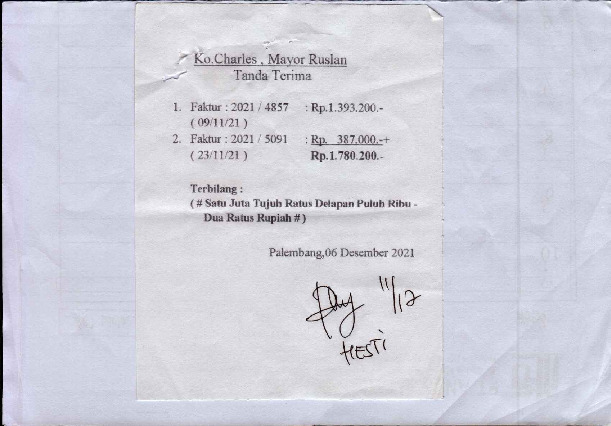 Ko.Charles , Mayor Ruslan
Tanda Terima
1. Faktur : 2021 / 4857 : Rp.1.393.200.-
( 09/11/21 )
2. Faktur : 2021 / 5091 : Rp. 387.000.-+
( 23/11/21 ) Rp.1.780.200.-
Terbilang :
( # Satu Juta Tujuh Ratus Delapan Puluh Ribu -
Dua Ratus Rupiah # )
Palembang,06 Desember 2021
11/12
HESTI